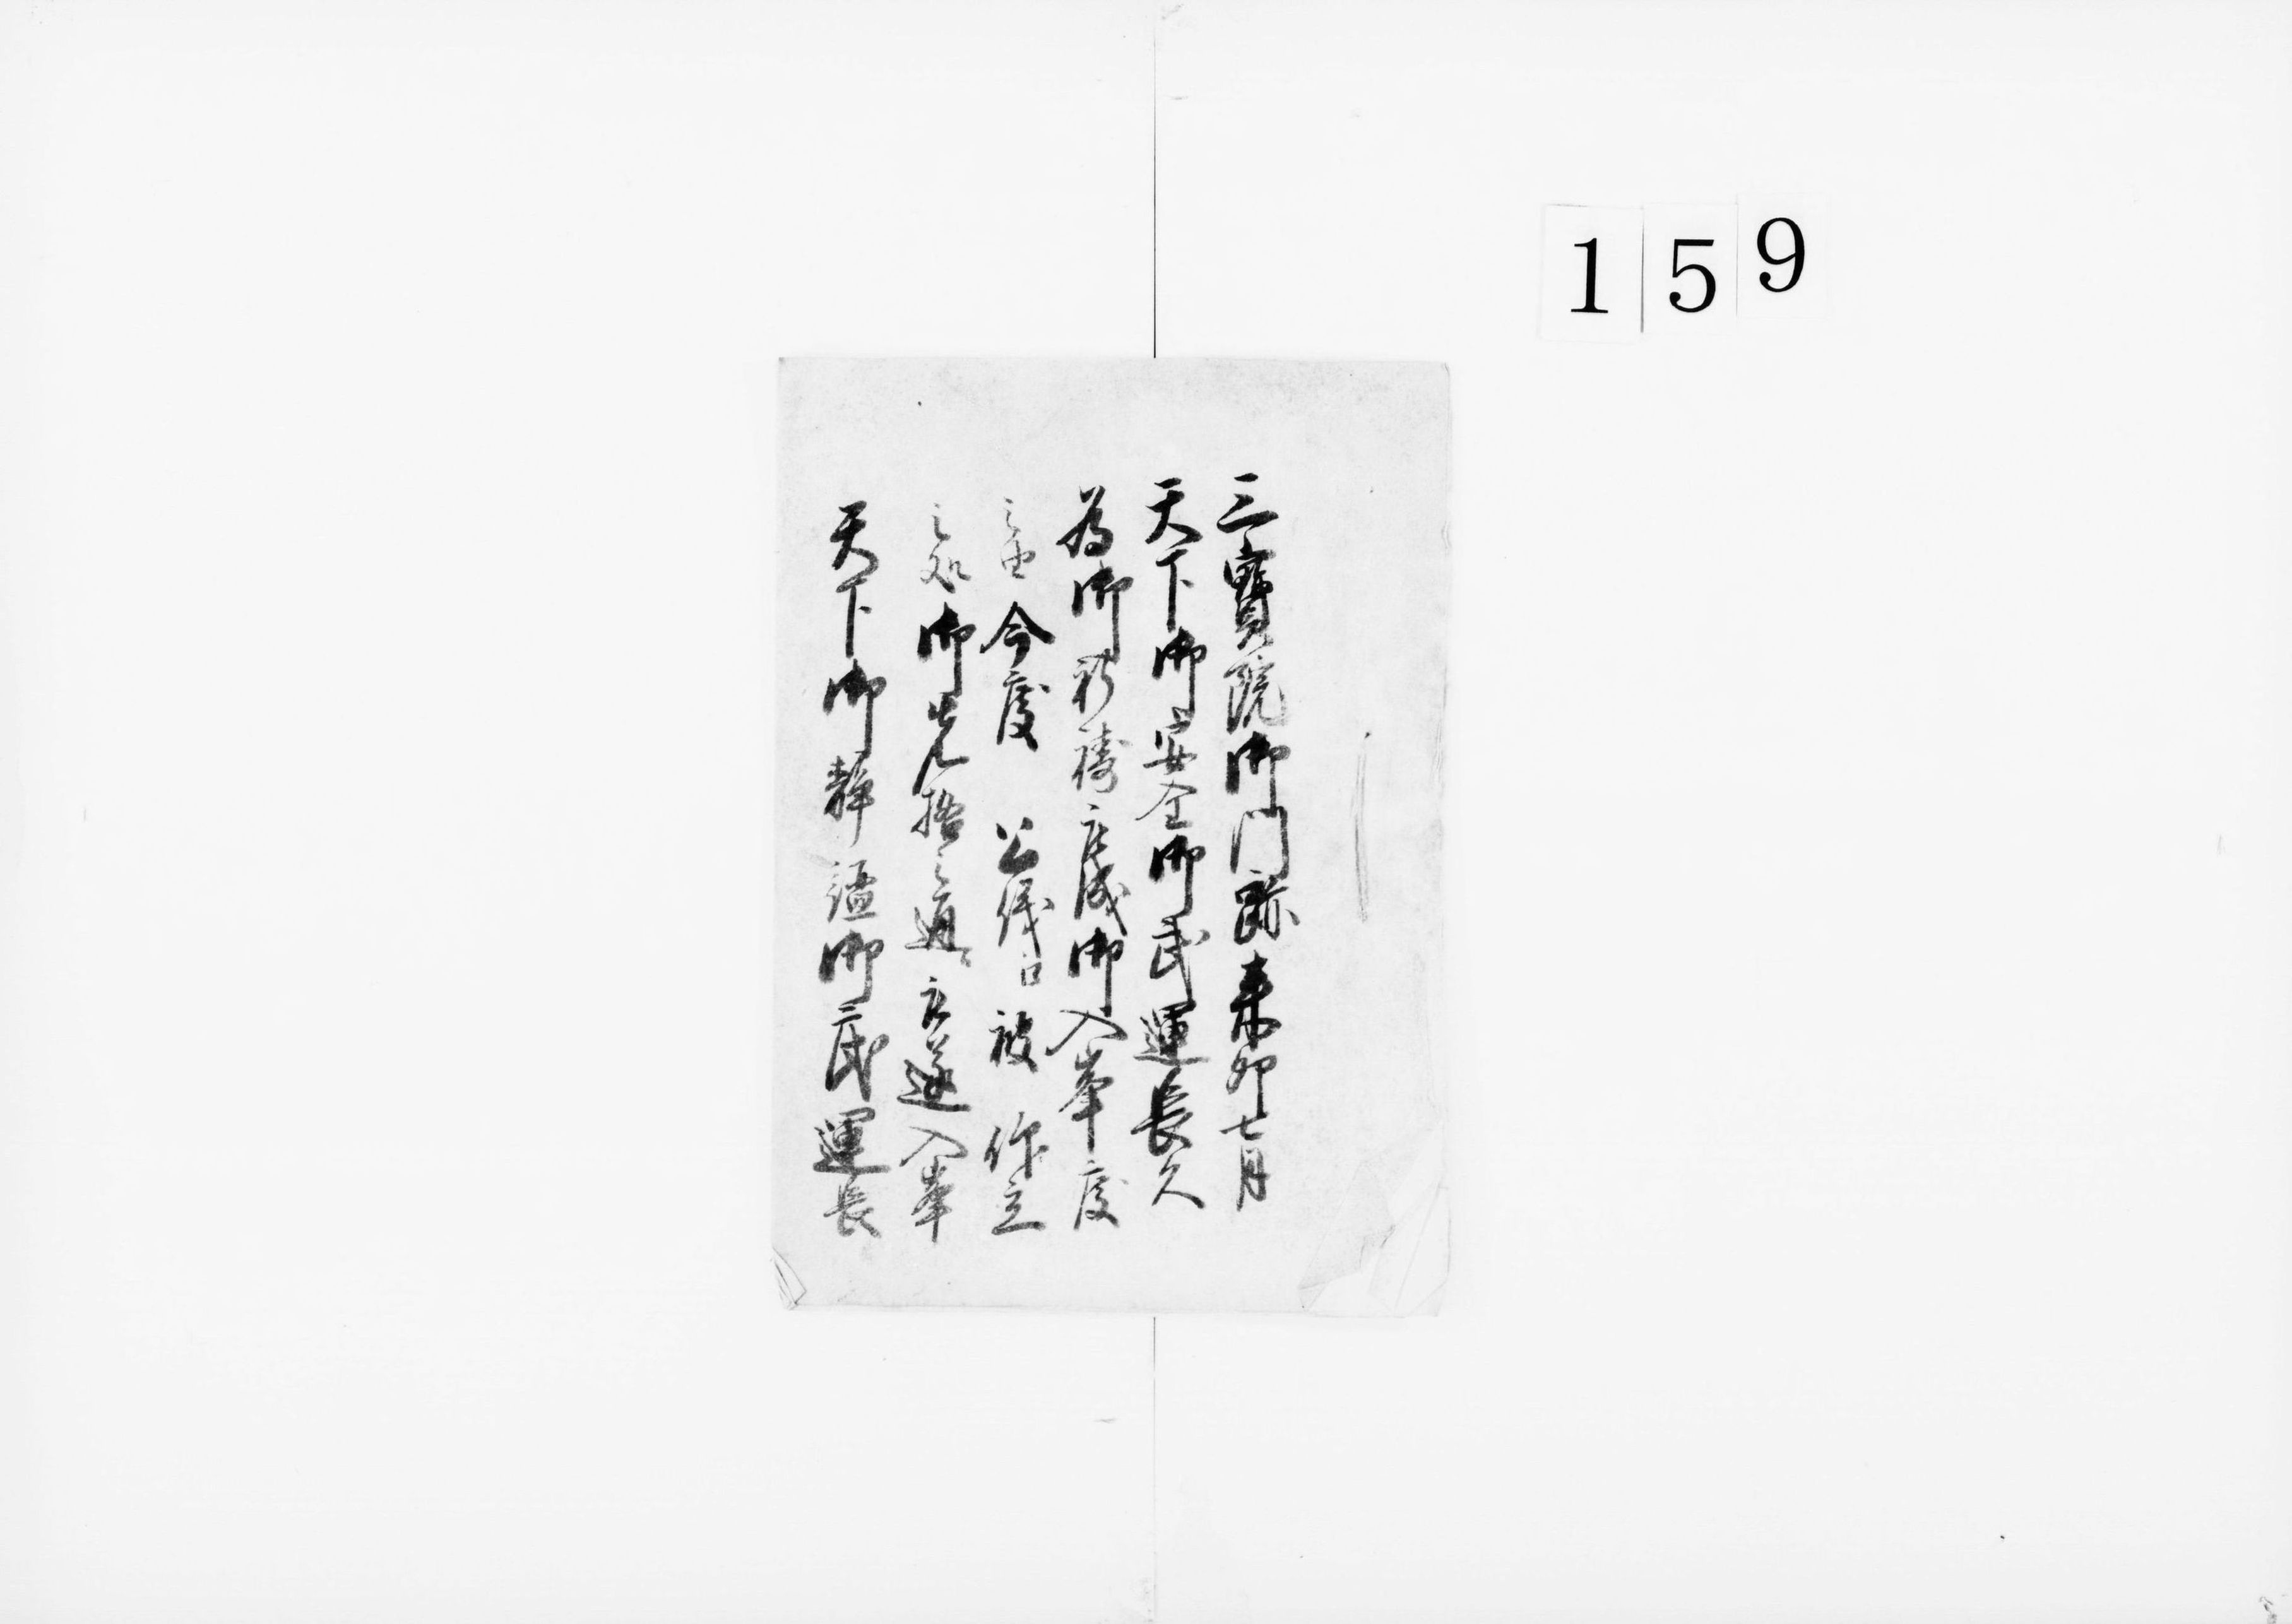 159
三寶院御門跡来卯七月
天下御安全御武運長久
為御祈禱被成御入峯度
之由今度 公儀江被 仰立
之処御先格之通被遂入峯
天下御静謐御武運長